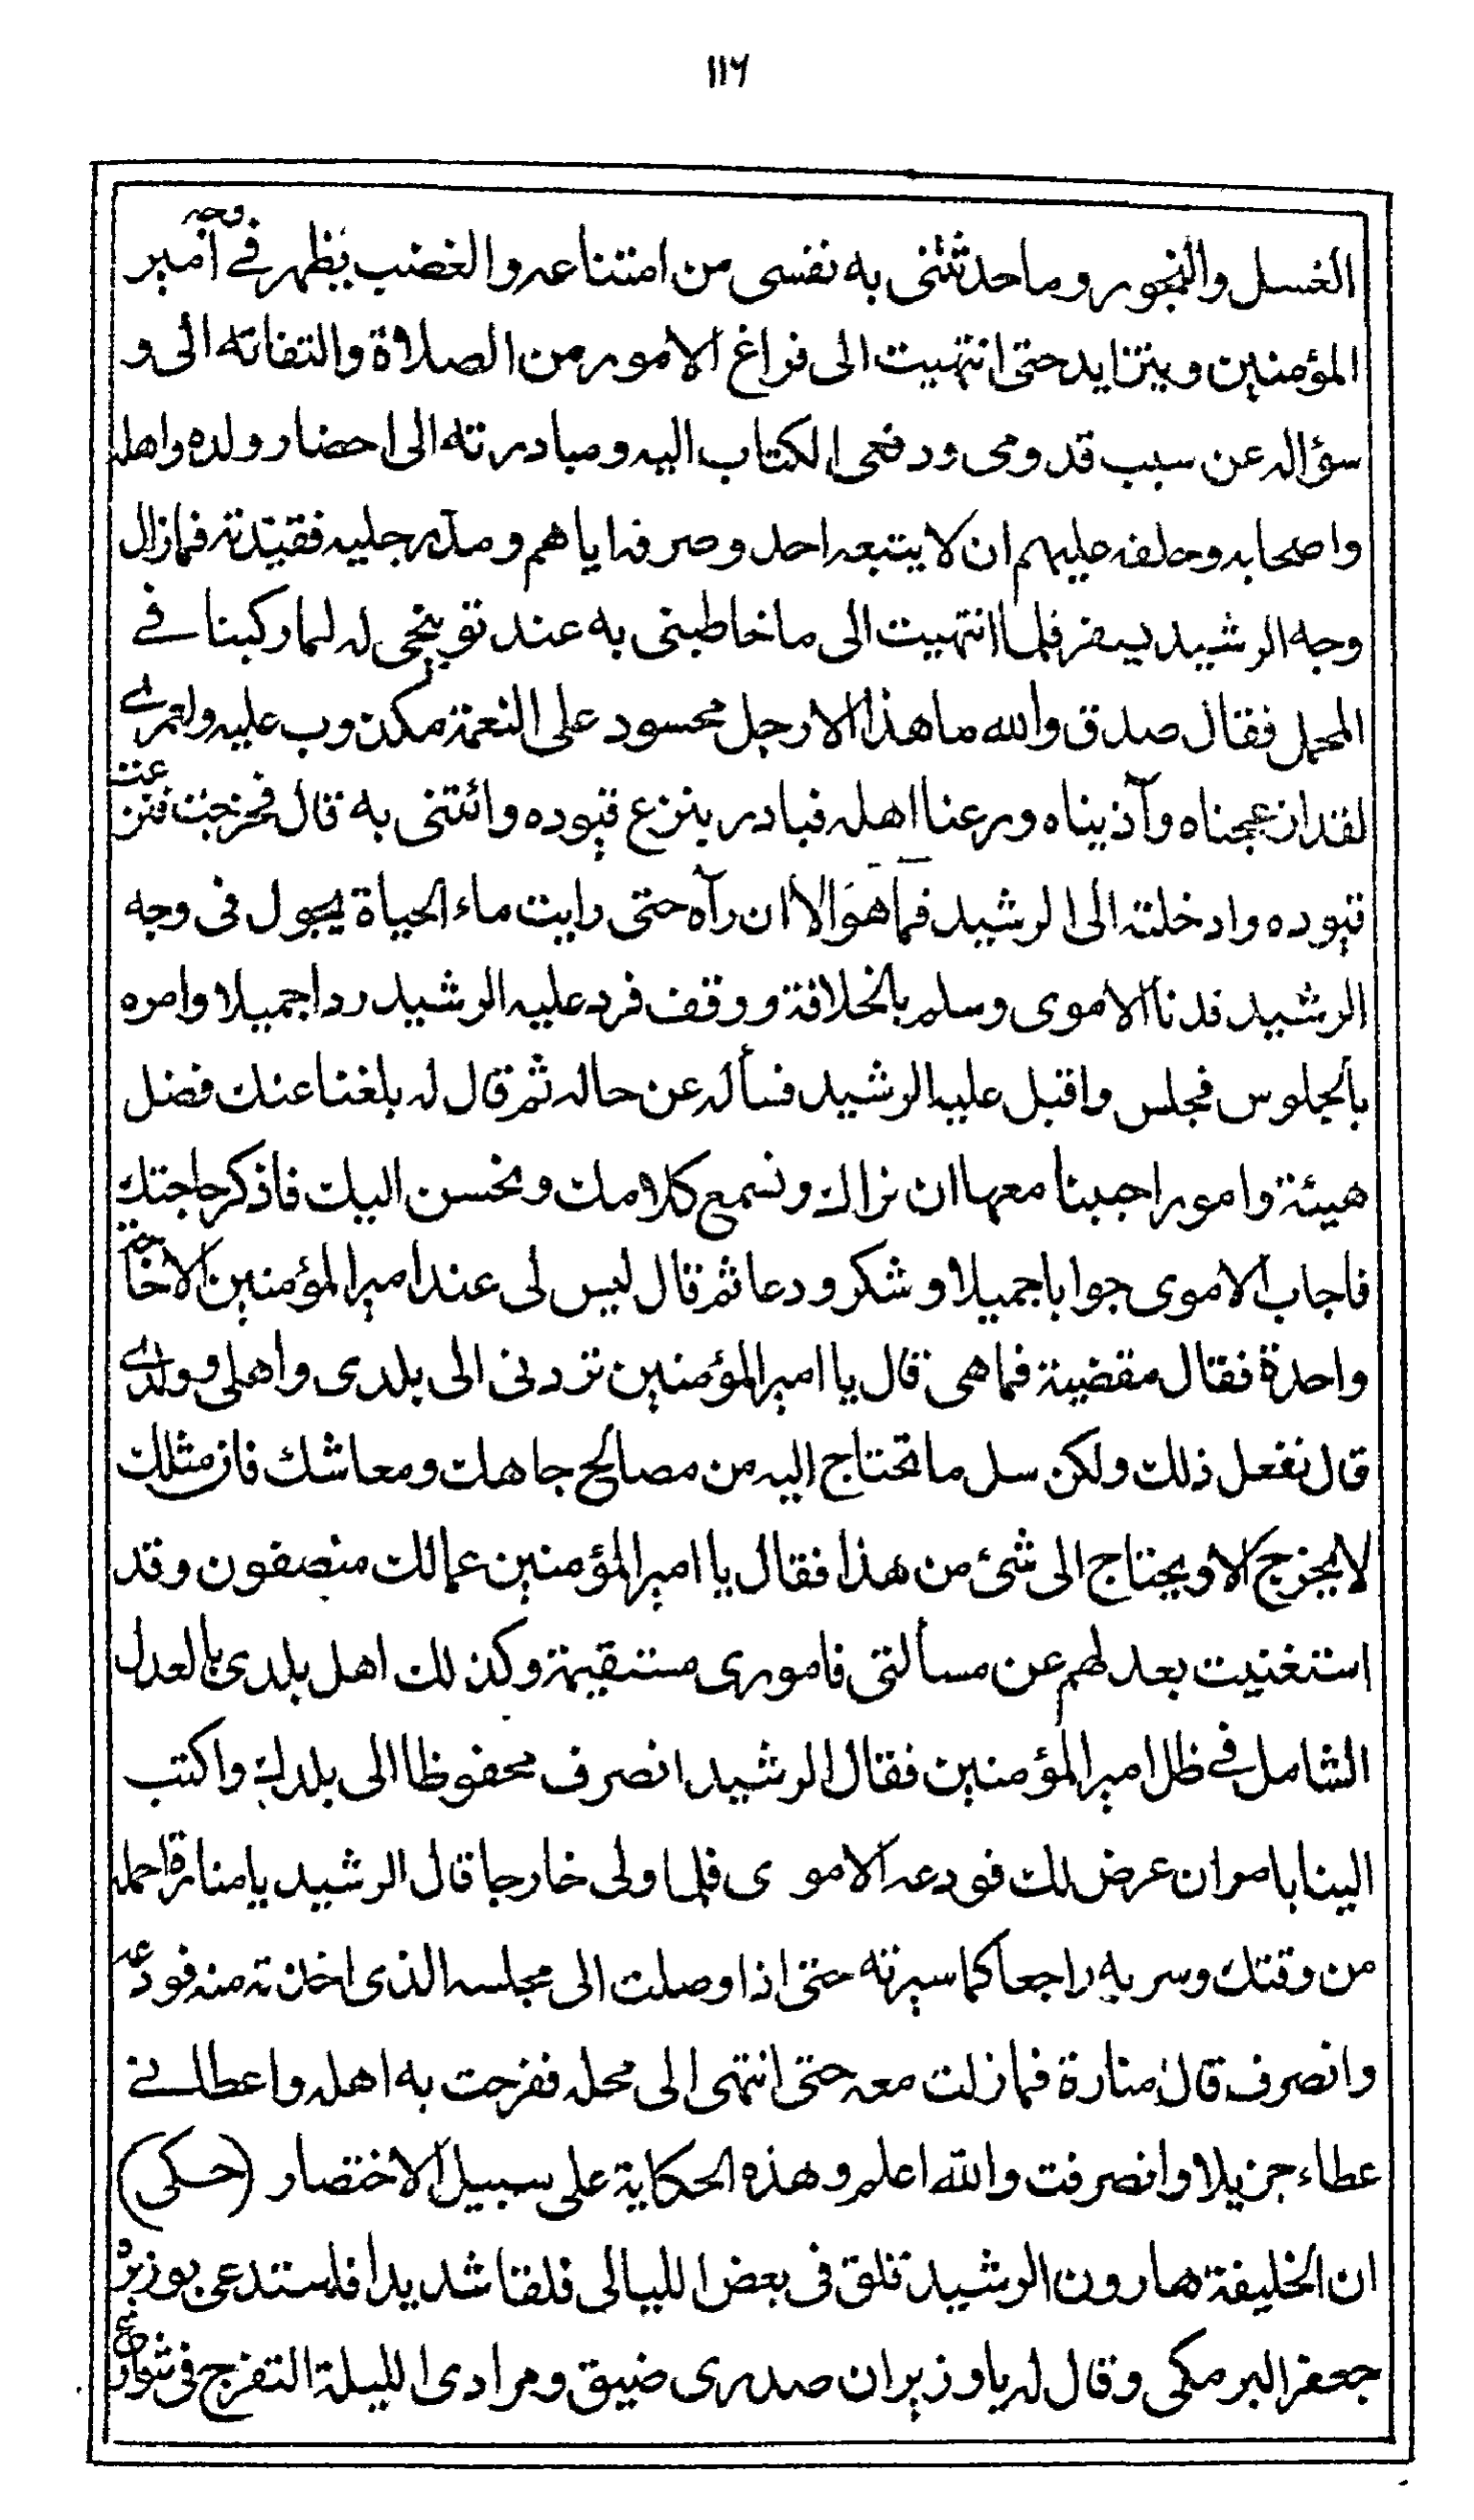 ١١٦
الغسل والبخور وما حدثتنى به نفسى من امتناعه والغضب يظهر فے وجه امير
المؤمنين ويتزايد حتى انتهيت الى فراغ الاموى من الصلاة والتفاته الى و
سؤاله عن سبب قدومى ودفعى الكتاب اليه ومبادرته الى احضار ولده واهله
واصحابه وحلفه عليهم ان لا يتبعه احد وصرفه اياهم ومد رجليه فقيدته فمازال
وجه الرشيد يسفر فلما انتهيت الى ما خاطبنى به عند توبيخى له لما ركبنا فے
المحمل فقال صدق والله ما هذا الا رجل محسود على النعمة مكذوب عليه ولعمرے
لقد ازعجناه وآذيناه ورعنا اهله فبادر بنزع قيوده وائتنى به قال فخرجت فنزعت
قيوده وادخلته الى الرشيد فما هو الا ان رآه حتى رايت ماء الحياة يجول فى وجه
الرشيد فدنا الاموى وسلم بالخلافة ووقف فرد عليه الرشيد ردا جميلا وامره
بالجلوس فجلس واقبل عليه الرشيد فسأله عن حاله ثم قال له بلغنا عنك فضل
هيئة وامور احببنا معها ان نراك ونسمع كلامك ونحسن اليك فاذكر حاجتك
فاجاب الاموى جوابا جميلا وشكر ودعا ثم قال ليس لى عند امير المؤمنين الا حاجة
واحدة فقال مقضية فما هى قال يا امير المؤمنين تردنى الى بلدى واهلى وولدے
قال نفعل ذلك ولكن سل ما تحتاج اليه من مصالح جاهك ومعاشك فان مثلك
لا يخرج الا ويحتاج الى شئ من هذا فقال يا امير المؤمنين عمالك منصفون وقد
استغنيت بعدلهم عن مسألتى فامورى مستقيمة وكذلك اهل بلدى بالعدل
الشامل فے ظل امير المؤمنين فقال الرشيد انصرف محفوظا الى بلدك واكتب
الينا بامر ان عرض لك فودعه الاموى فلما ولى خارجا قال الرشيد يا منارة احمله
من وقتك وسر به راجعا كما سيرته حتى اذا وصلت الى مجلسه الذى اخذته منه فودعه
وانصرف قال منارة فما زلت معه حتى انتهى الى محله ففرحت به اهله واعطانے
عطاء جزيلا وانصرفت والله اعلم وهذه الحكاية على سبيل الاختصار (حكى)
ان الخليفة هارون الرشيد قلق فى بعض الليالى قلقا شديدا فاستدعى بوزيره
جعفر البرمكى وقال له يا وزير ان صدرى ضيق ومرادى الليلة التفرج فى شوارع